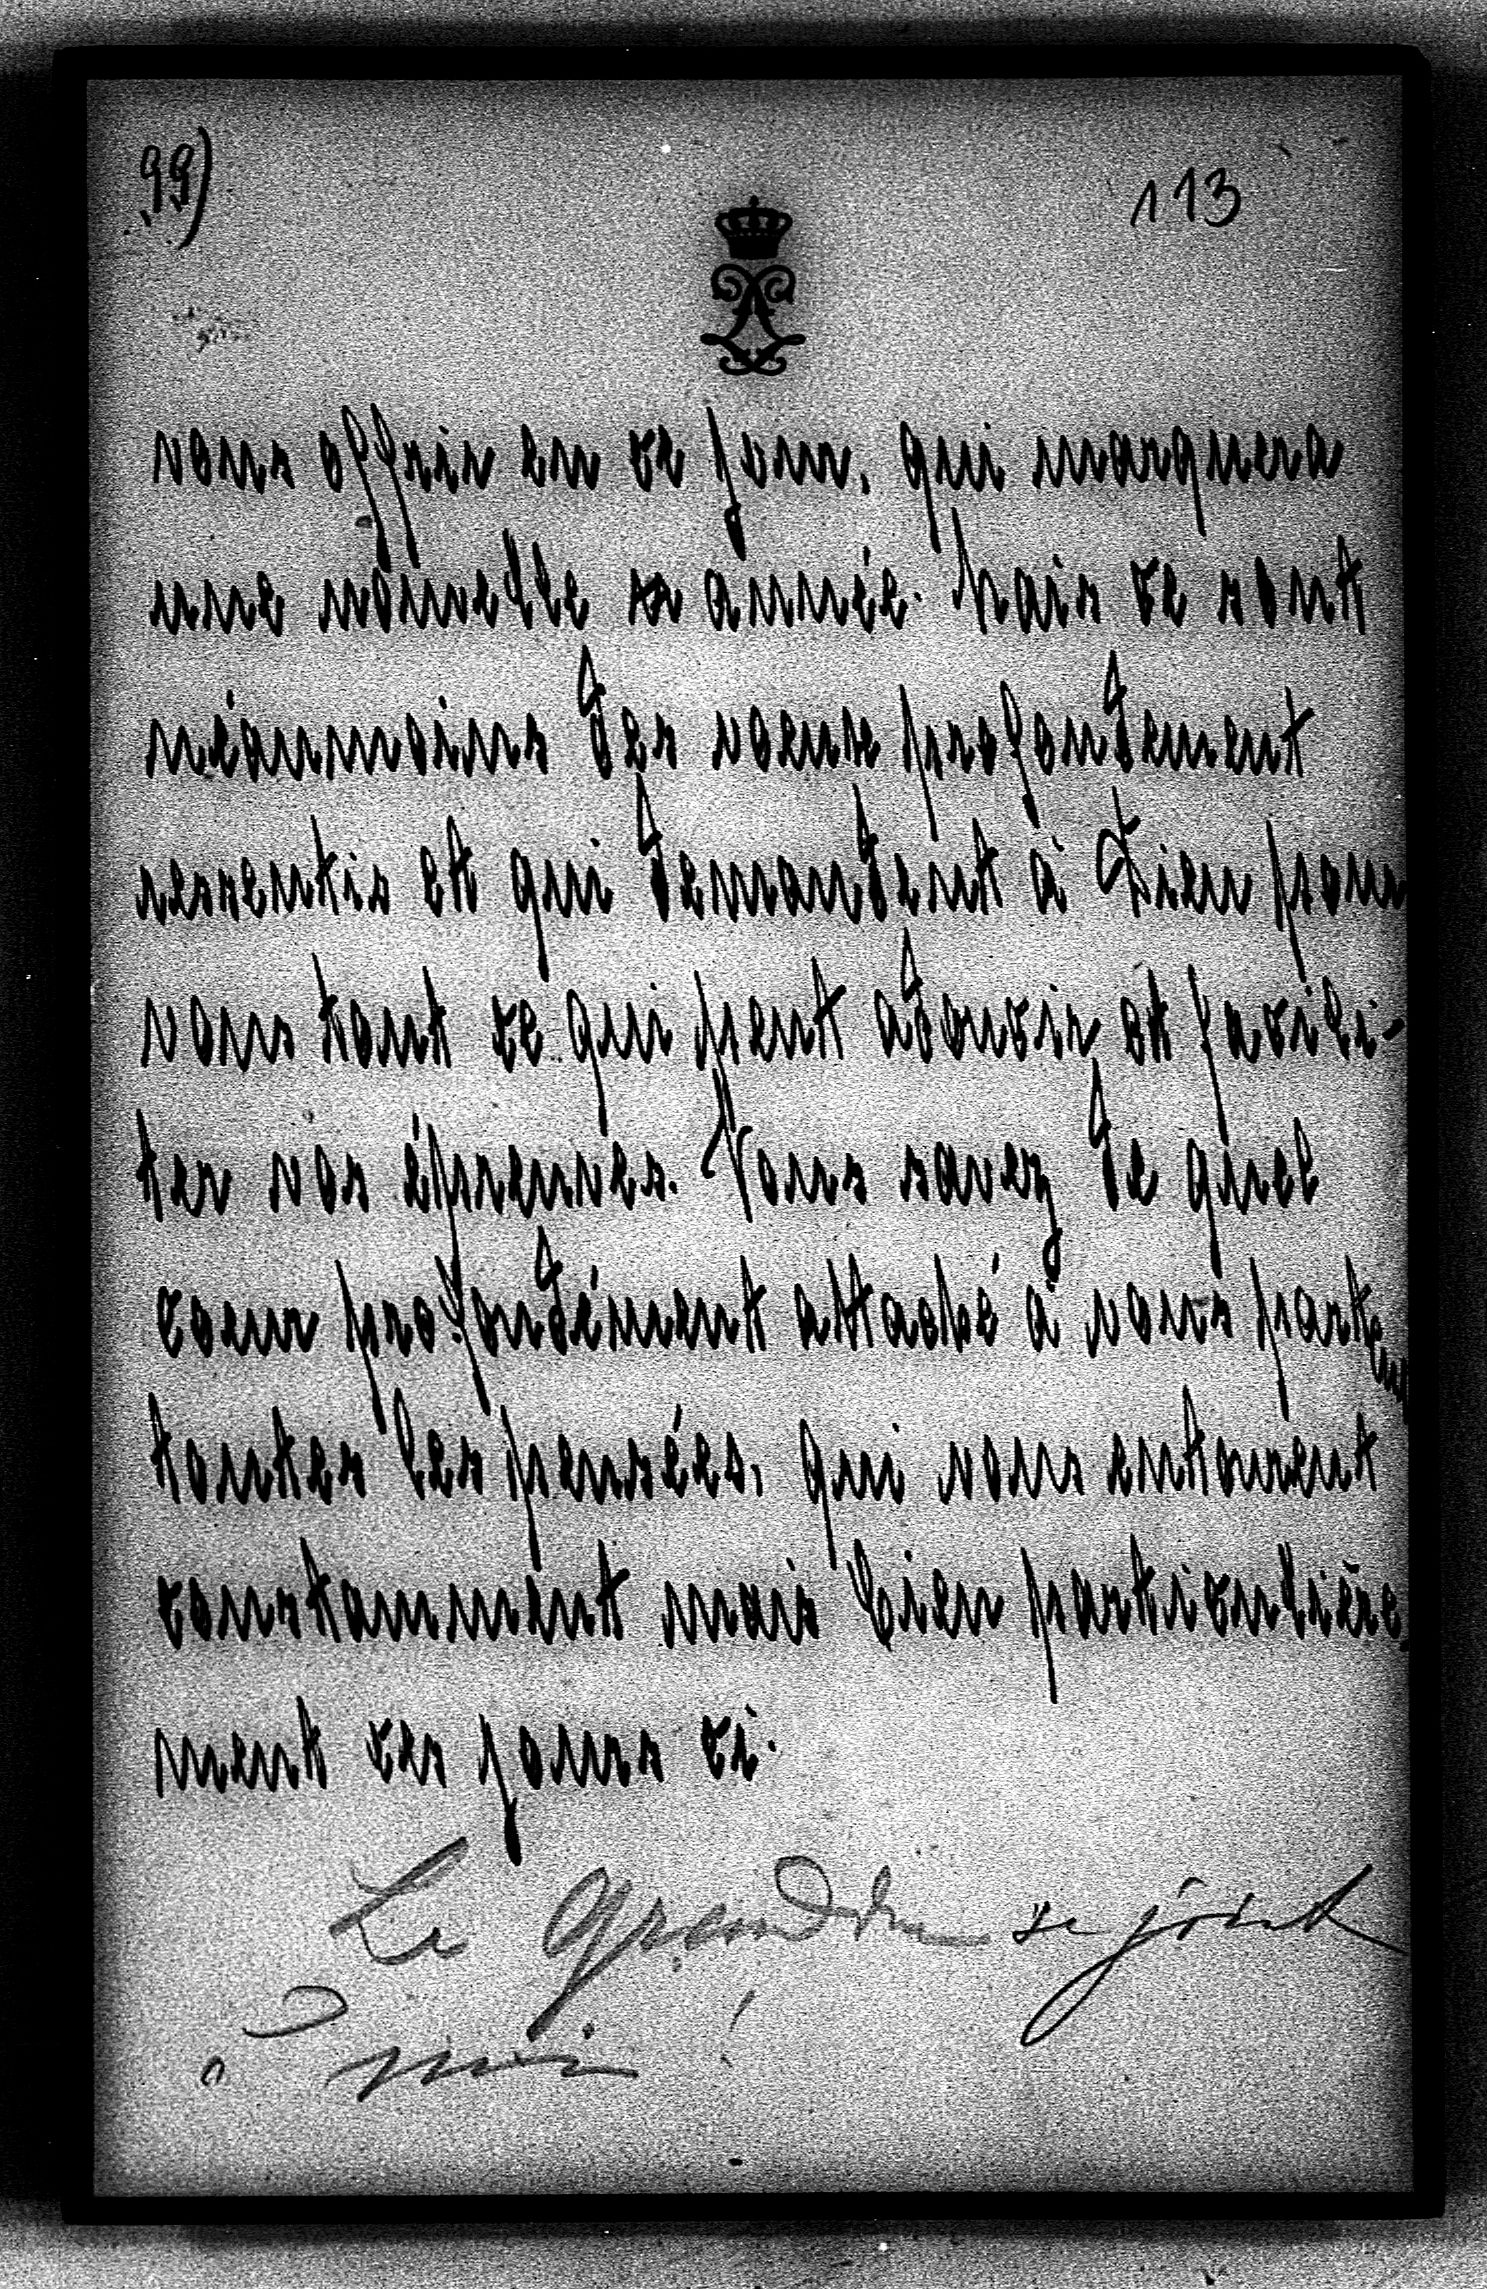 99)
113
vous offrir en ce jour, qui marquera
une nouvelle année. Mais ce sont
néanmoins des voeux profondement
ressentis et qui demandent à Dieu pour
vous tout ce qui peut adoucir et facili-
ter vos épreuves. Vous savez de quel
coeur profondément attaché à vous partent
toutes les pensées, qui vous entourent
constamment mais bien particulière
ment ces jours ci.
Le Grandduc se joint
à moi